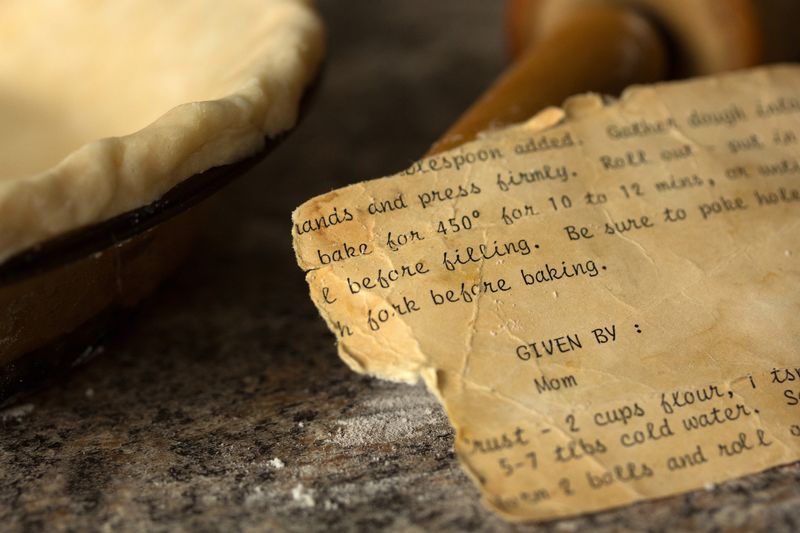 blespoon added. Gather dough into
hands and press firmly. Roll out put in
bake for 450° for 10 to 12 mins, or unti
l before filling. Be sure to poke hole
h fork before baking.
GIVEN BY :
Mom
rust - 2 cups flour, 1 tsp
5-7 tlbs cold water. S
2 balls and roll